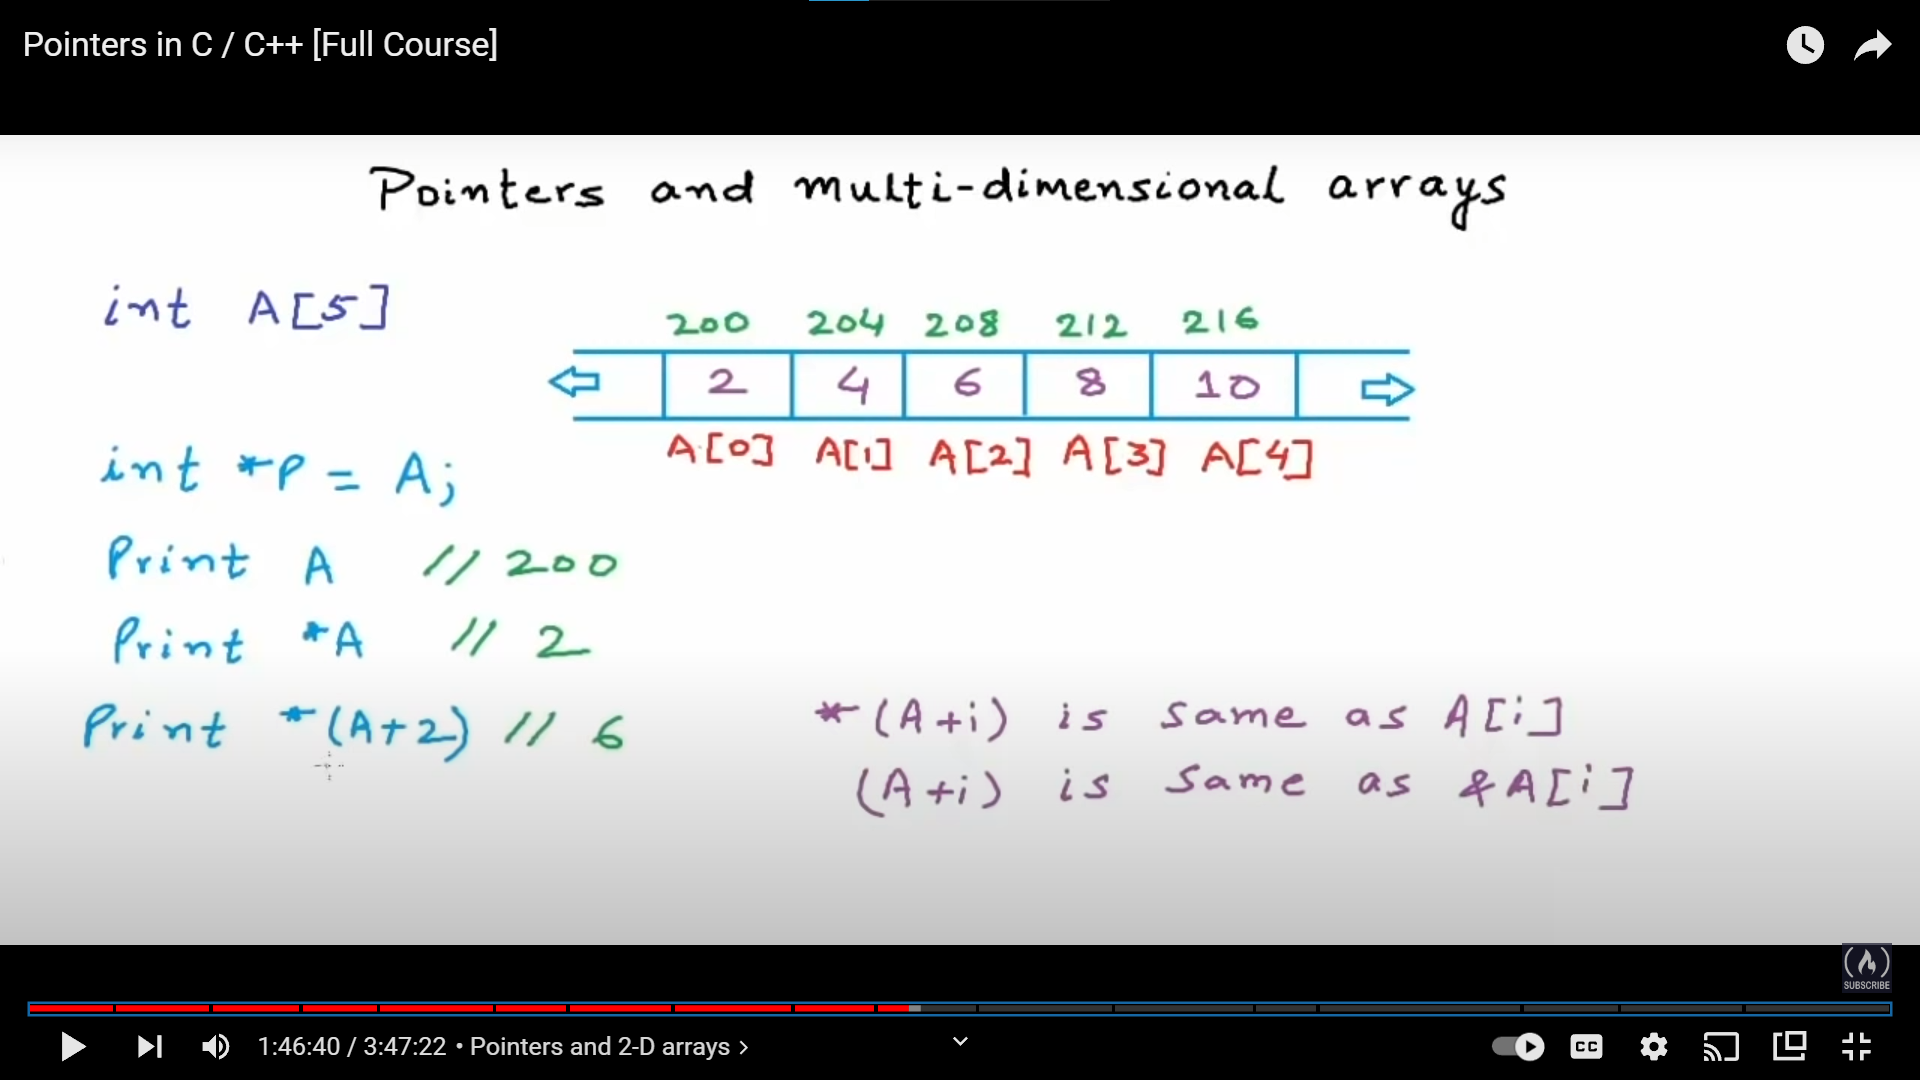 Pointers in C / C++ [Full Course]
Pointers and multi-dimensional arrays
int A[5]
200 204 208 212 216
2 4 6 8 10
A[0] A[1] A[2] A[3] A[4]
int *P = A;
Print A // 200
Print *A // 2
Print *(A+2) // 6
*(A+i) is same as A[i]
(A+i) is same as &A[i]
SUBSCRIBE
1:46:40 / 3:47:22 • Pointers and 2-D arrays >
CC